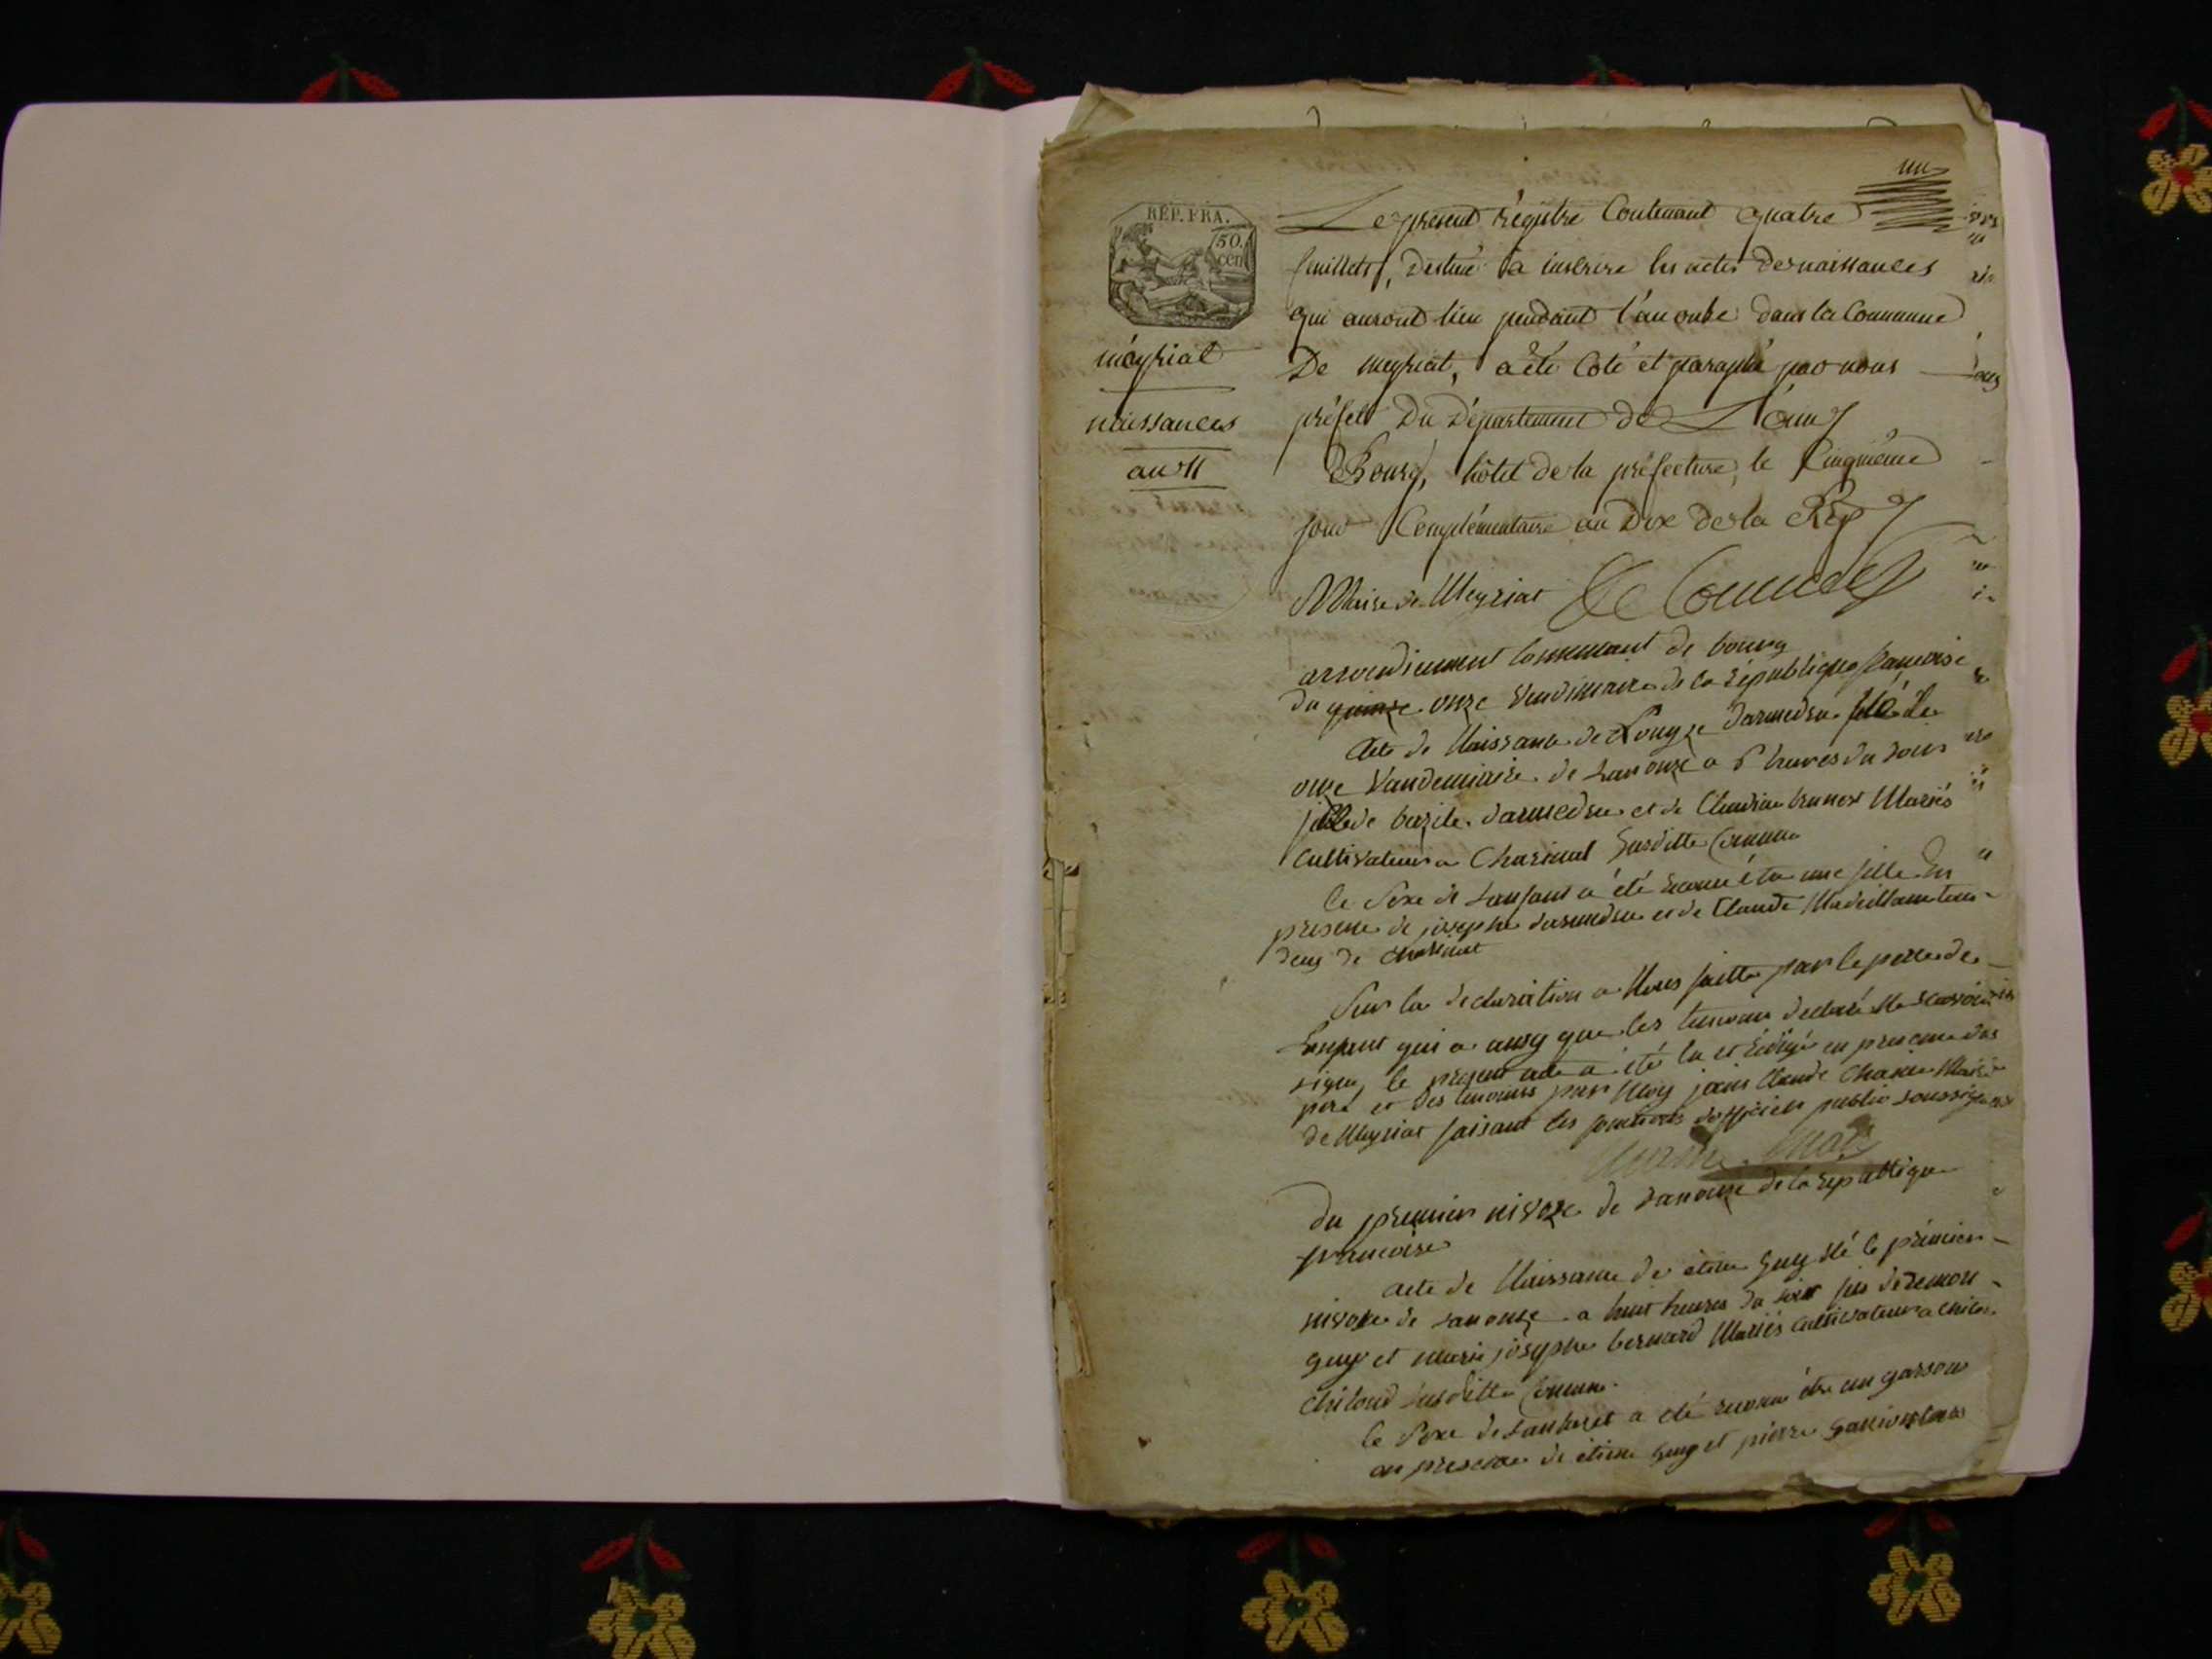 un
REP. FRA.
50.
cen
Le present régistre Contenant quatre
feuillets, Destiné à inscrire les actes de naissances
qui auront lieu pendant l'an onze dans la Commune
De meyriat, a été Coté et paraphé par nous
préfet Du Département de L'ain
Bourg, hôtel de la préfecture, le Cinquième
jour Complémentaire an Dix de la Rép
méyriat
naissances
an 11
Mairie de Meyriat
arrondicement Communant de bourg
du quinze onze Vendimaire de la république françoise
Acte de Naissance de Darmedru Né Le
onze Vandemiaire de Lan onze a 6 heures du soir
fille de bazile darmedru et de Claudine brunet Mariés
Cultivateur a Charinat Susditte Comune
le Sexe de Lanfant a été reconu étre une fille En
presence de josephe darmedru et de Claude tous
deux de Charinat
Sur la declaration a Nous faitte par le pere de
Lenfant qui a ausy que les temoins declaré Ne scavoir
signer, le present acte a été lu et rédigé en presence des
peré et des temoins par Moy jean Claude Charin Maire
de Meyriat faisant les fonctions dofficier public soussigné
du premier nivoze de Lan onze de la republique
francoise
acte de Naissance de etiene Guy Né le prémier
nivoze de Lan onze a huit heures du soir fils de Remon
Guy et marie josephe bernard Mariés Cultivateur a
Chiloud Susditte Comune.
le Sexe de Lanfant a été reconu étre un garson
an presence de etiene Guy et pierre